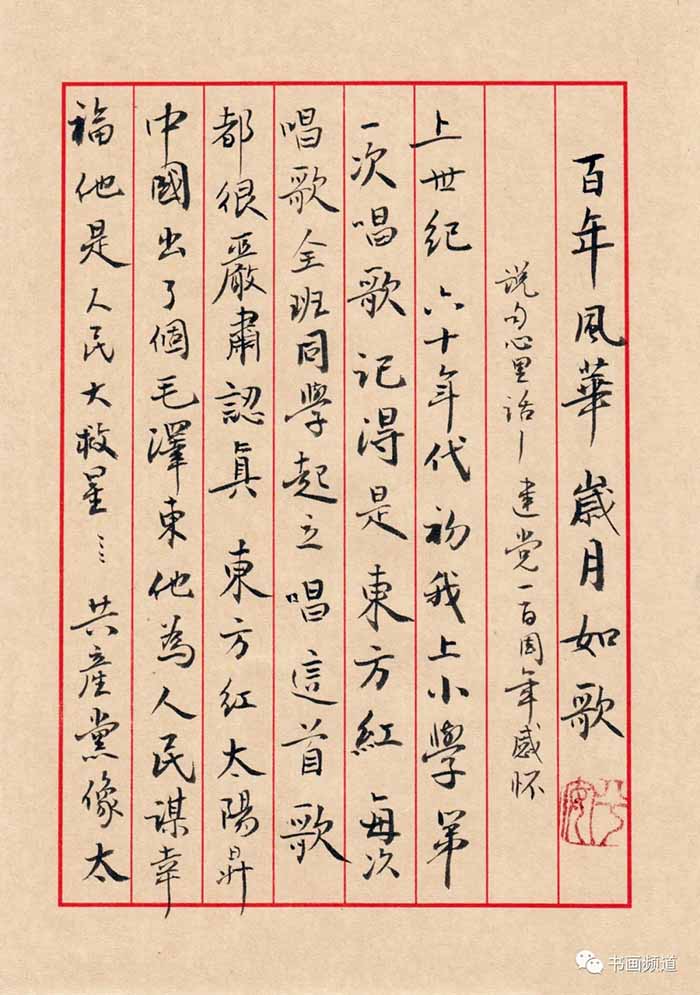 百年風華歲月如歌
说句心里话——建党一百周年感怀
上世纪六十年代初我上小學第
一次唱歌記得是東方紅每次
唱歌全班同學起立唱這首歌
都很嚴肅認真東方红太陽昇
中國出了個毛澤東他為人民謀幸
福他是人民大救星……共產黨像太
书画频道